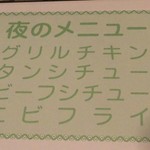 夜のメニュー
グリルチキン
タンシチュー
ビーフシチュー
エビフライ